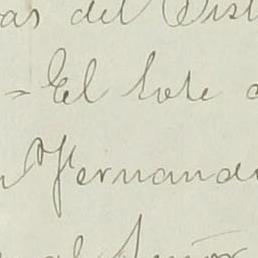 as del Dist
= El lote
Fernand
al Señor